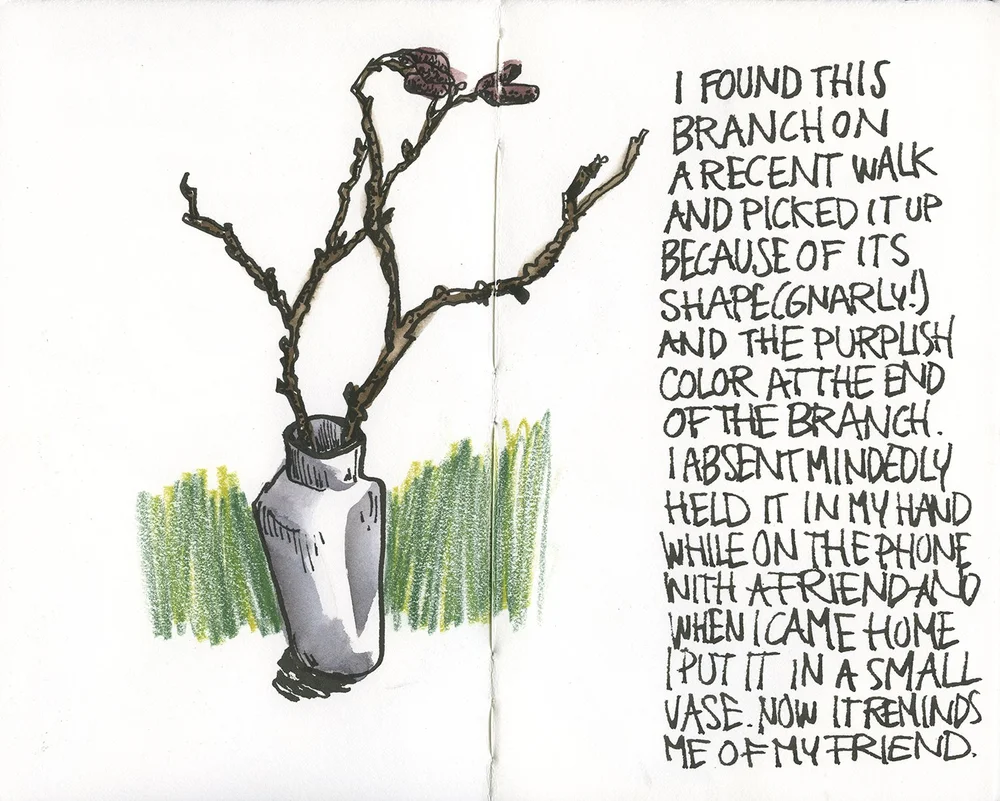 I FOUND THIS
BRANCH ON
A RECENT WALK
AND PICKED IT UP
BECAUSE OF ITS
SHAPE (GNARLY!)
AND THE PURPLISH
COLOR AT THE END
OF THE BRANCH.
I ABSENTMINDEDLY
HELD IT IN MY HAND
WHILE ON THE PHONE
WITH A FRIEND AND
WHEN I CAME HOME
I PUT IT IN A SMALL
VASE. NOW IT REMINDS
ME OF MY FRIEND.